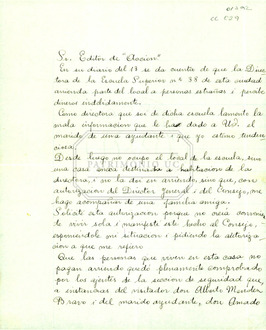 Sr. Editor de "Acción"
En su diario del 13 se da cuenta de que la Direc
tora de la Escuela Superior nº 38 de esta ciudad
arrienda parte del local a personas estrañas i percibe
dineros indebidamente.
Como directora que soi de dicha escuela lamento la
mala informacion que le ha dado a Ud. el
marido de una ayudante i que yo estimo tenden
ciosa.
Desde luego no ocupo el local de la escuela, sino
una casa anexa destinada a habitacion de la
directora, i no la doi en arriendo sino que, con
autorizacion del Director Jeneral i del Consejo, me
hago acompañar de una familia amiga.
Solicité esta autorizacion porque no creia conveniente
vivir sola i manifesté este hecho al Consejo,
esponiéndole mi situacion i pidiendo la autoriza
cion a que me refiero.
Que las personas que viven en esta casa no
pagan arriendo quedó plenamente comprobado
por los ajentes de la seccion de seguridad que
a instancias del visitador don Alberto Méndez
Bravo i del marido ayudante, don Amado